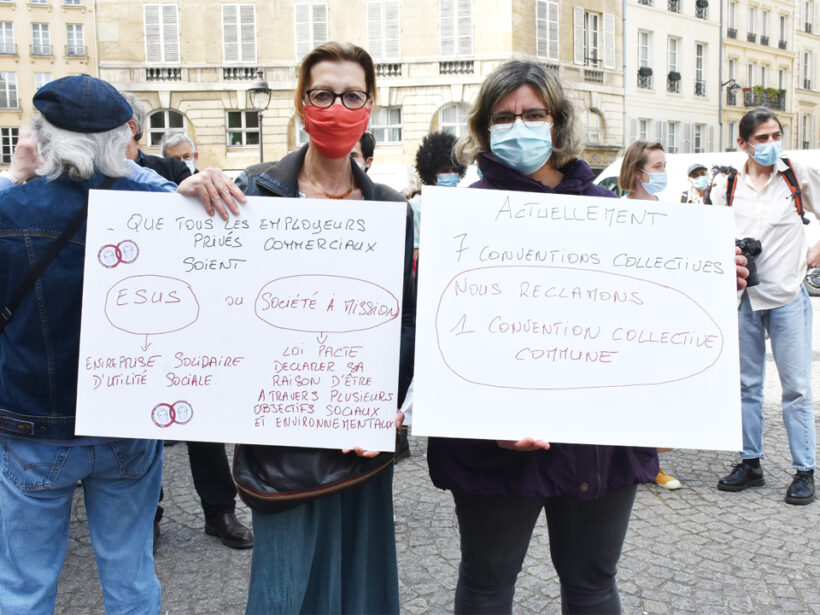 - QUE TOUS LES EMPLOYEURS
PRIVÉS COMMERCIAUX
SOIENT
ESUS ou SOCIÉTÉ À MISSION
ENTREPRISE SOLIDAIRE
D'UTILITÉ SOCIALE
LOI PACTE
DECLARER SA
RAISON D'ÊTRE
A TRAVERS PLUSIEURS
OBJECTIFS SOCIAUX
ET ENVIRONNEMENTAUX
ACTUELLEMENT
7 CONVENTIONS COLLECTIVES
NOUS RECLAMONS
1 CONVENTION COLLECTIVE
COMMUNE